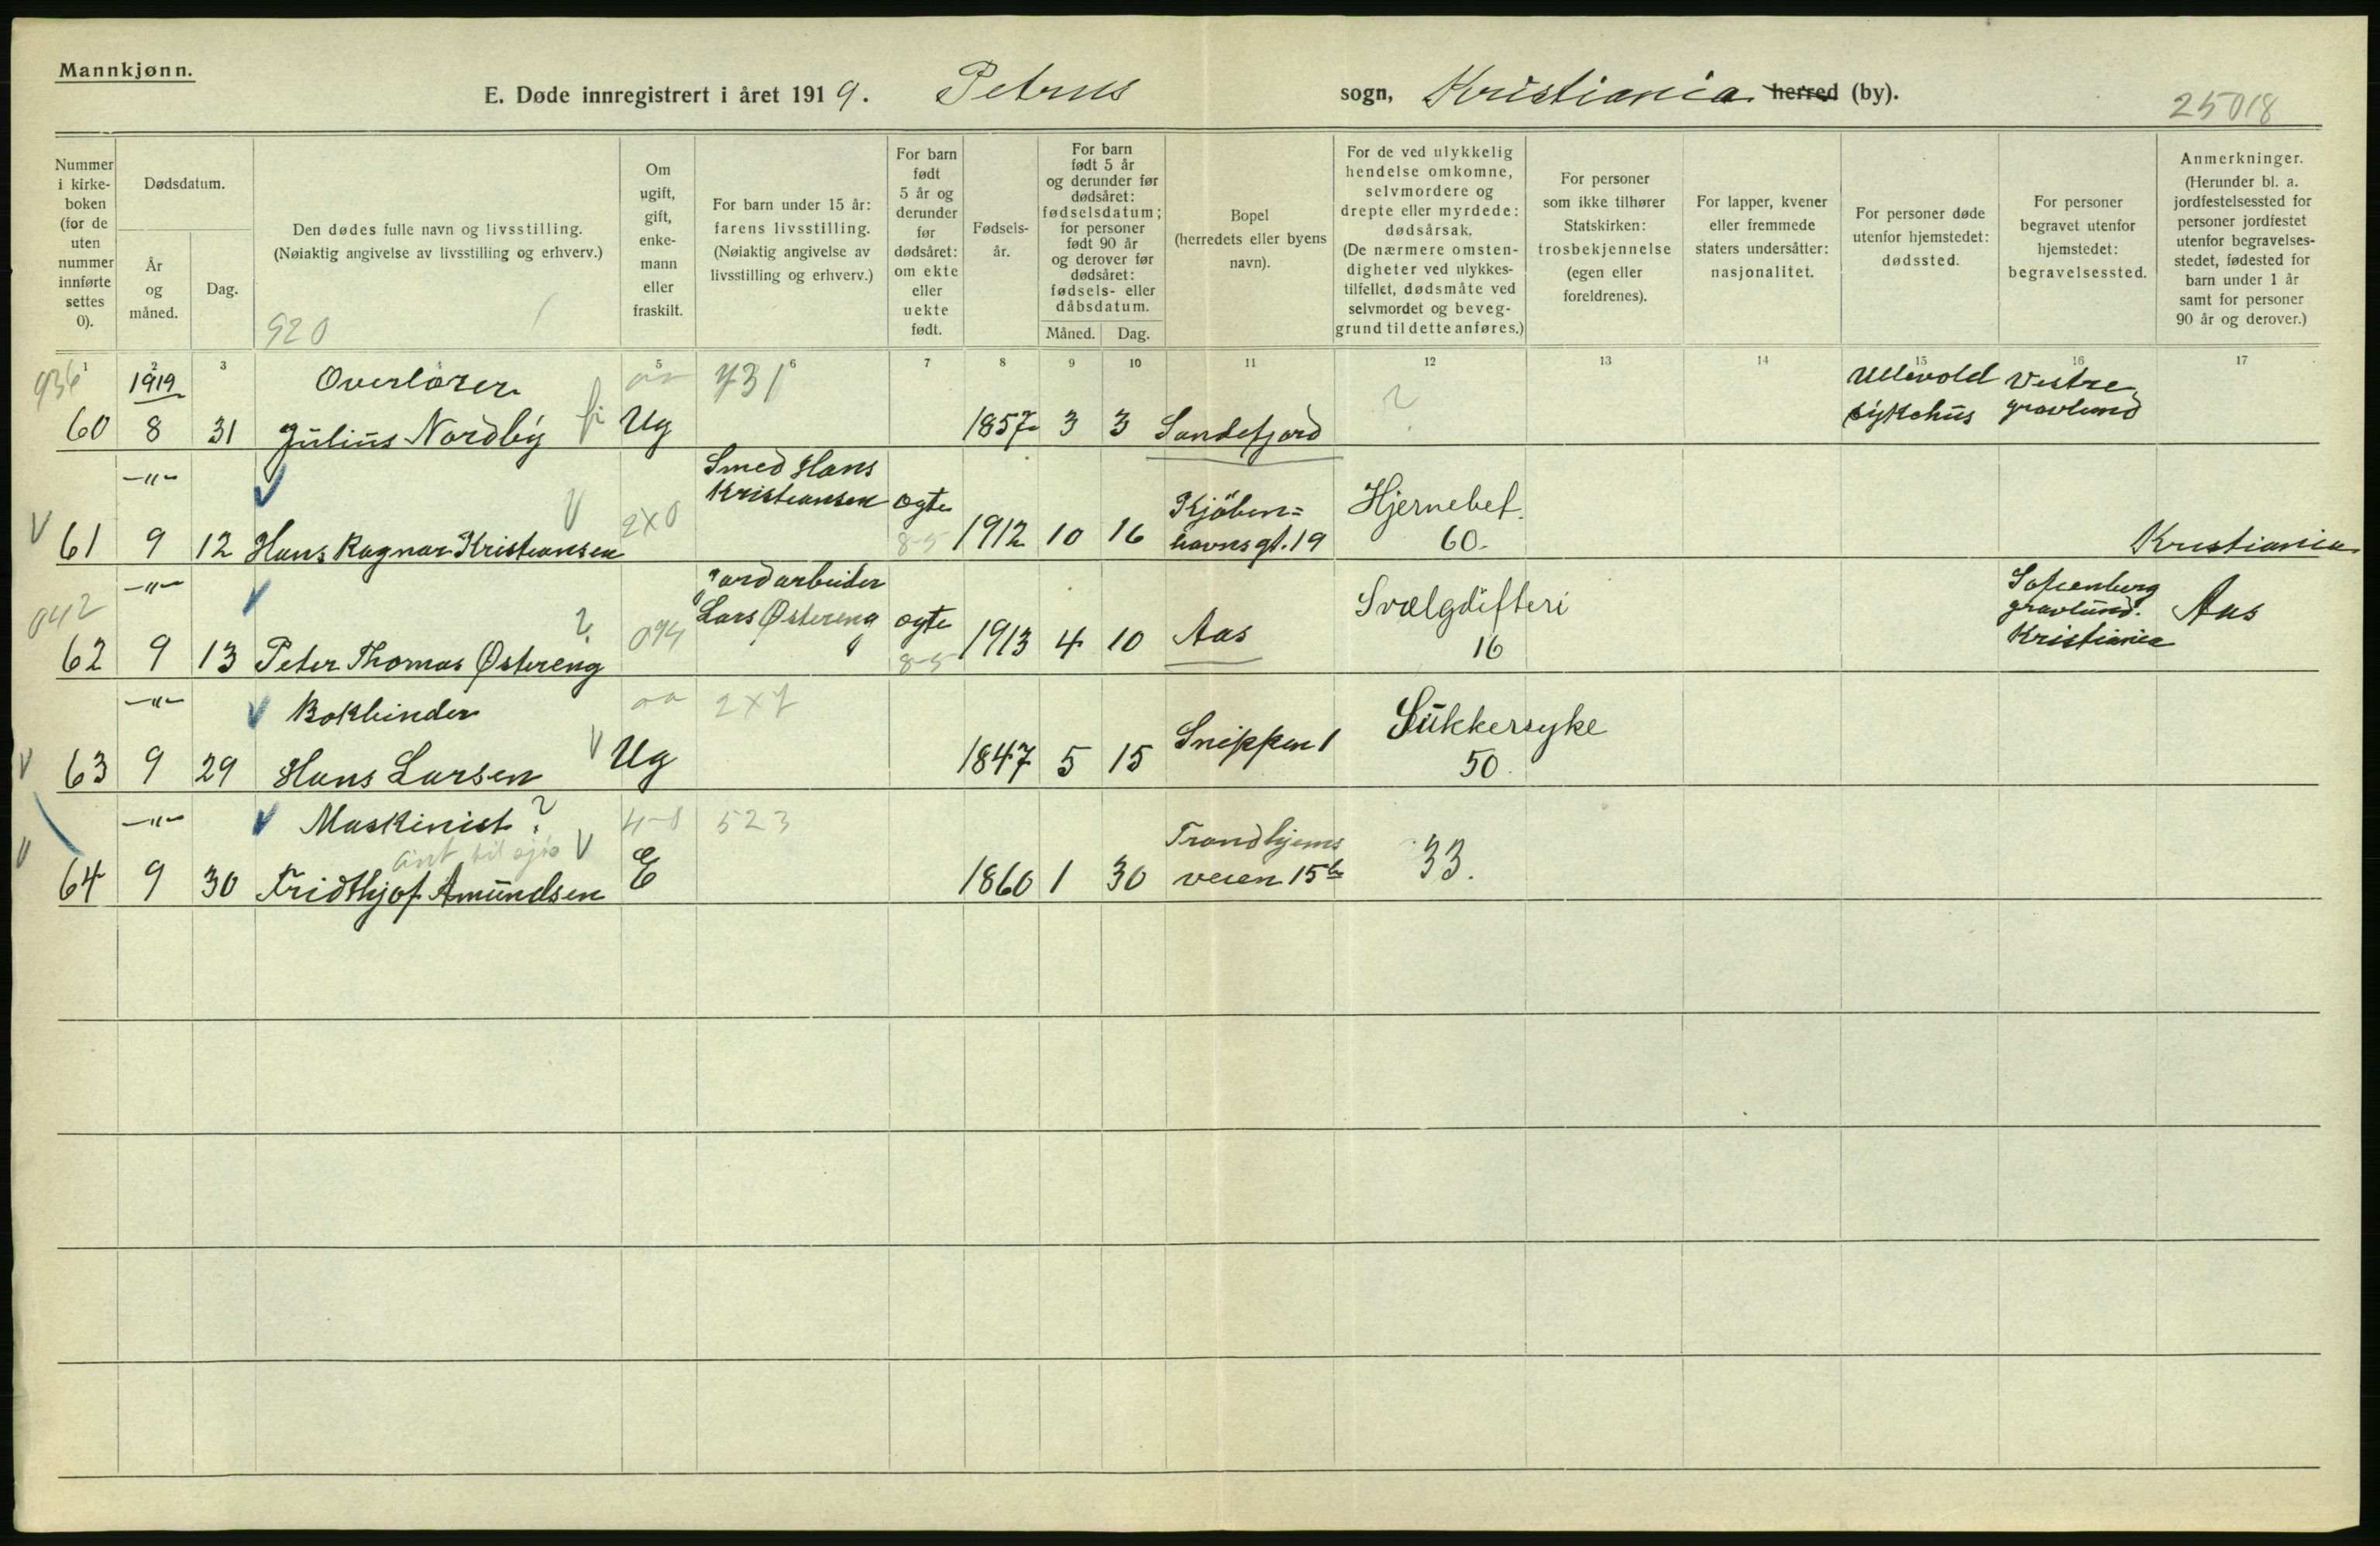 Mannkjønn.
E. Døde innregistrert i året 1919. Petrus sogn, Kristiania herred (by).
25018
Nummer i kirke-boken (for de uten nummer innførte settes 0).
Dødsdatum.
År og måned.
Dag.
Den dødes fulle navn og livsstilling.
(Nøiaktig angivelse av livsstilling og erhverv.)
920
Om ugift, gift, enke-mann eller fraskilt.
For barn under 15 år: farens livsstilling.
(Nøiaktig angivelse av livsstilling og erhverv.)
For barn født 5 år og derunder før dødsåret: om ekte eller uekte født.
Fødsels-år.
For barn født 5 år og derunder før dødsåret: fødselsdatum; for personer født 90 år og derover før dødsåret: fødsels- eller dåbsdatum.
Måned. Dag.
Bopel (herredets eller byens navn).
For de ved ulykkelig hendelse omkomne, selvmordere og drepte eller myrdede: dødsårsak.
(De nærmere omsten-digheter ved ulykkes-tilfellet, dødsmåte ved selvmordet og beveg-grund til dette anføres.)
For personer som ikke tilhører Statskirken: trosbekjennelse (egen eller foreldrenes).
For lapper, kvener eller fremmede staters undersåtter: nasjonalitet.
For personer døde utenfor hjemstedet: dødssted.
For personer begravet utenfor hjemstedet: begravelsessted.
Anmerkninger.
(Herunder bl. a. jordfestelsessted for personer jordfestet utenfor begravelses-stedet, fødested for barn under 1 år samt for personer 90 år og derover.)
1 2 3 5 6 7 8 9 10 11 12 13 14 15 16 17
936 1919 Overlærer 731 Ullevold Vestre
60 8 31 Julius Nordby Ug 1857 3 3 Sandefjord ? sykehus gravlund
—"— Smed Hans
Kristiansen ægte Kjöben= Hjernebet.
61 9 12 Hans Ragnar Kristiansen 2X0 8-5 1912 10 16 havnsgt. 19 60. Kristiania
—"— Jordarbeider Sofienberg
042 Lars Østereng ægte Svælgdifteri gravlund. Aas
62 9 13 Peter Thomas Østereng ? 094 8-5 1913 4 10 Aas 16 Kristiania
—"— Bokbinder 2X7 Sukkersyke
63 9 29 Hans Larsen Ug 1847 5 15 Snippen 1 50.
—"— Maskinist ? 4-0 523 Trondhjems
64 9 30 Fridthjof Amundsen E 1860 1 30 veien 15b 33.